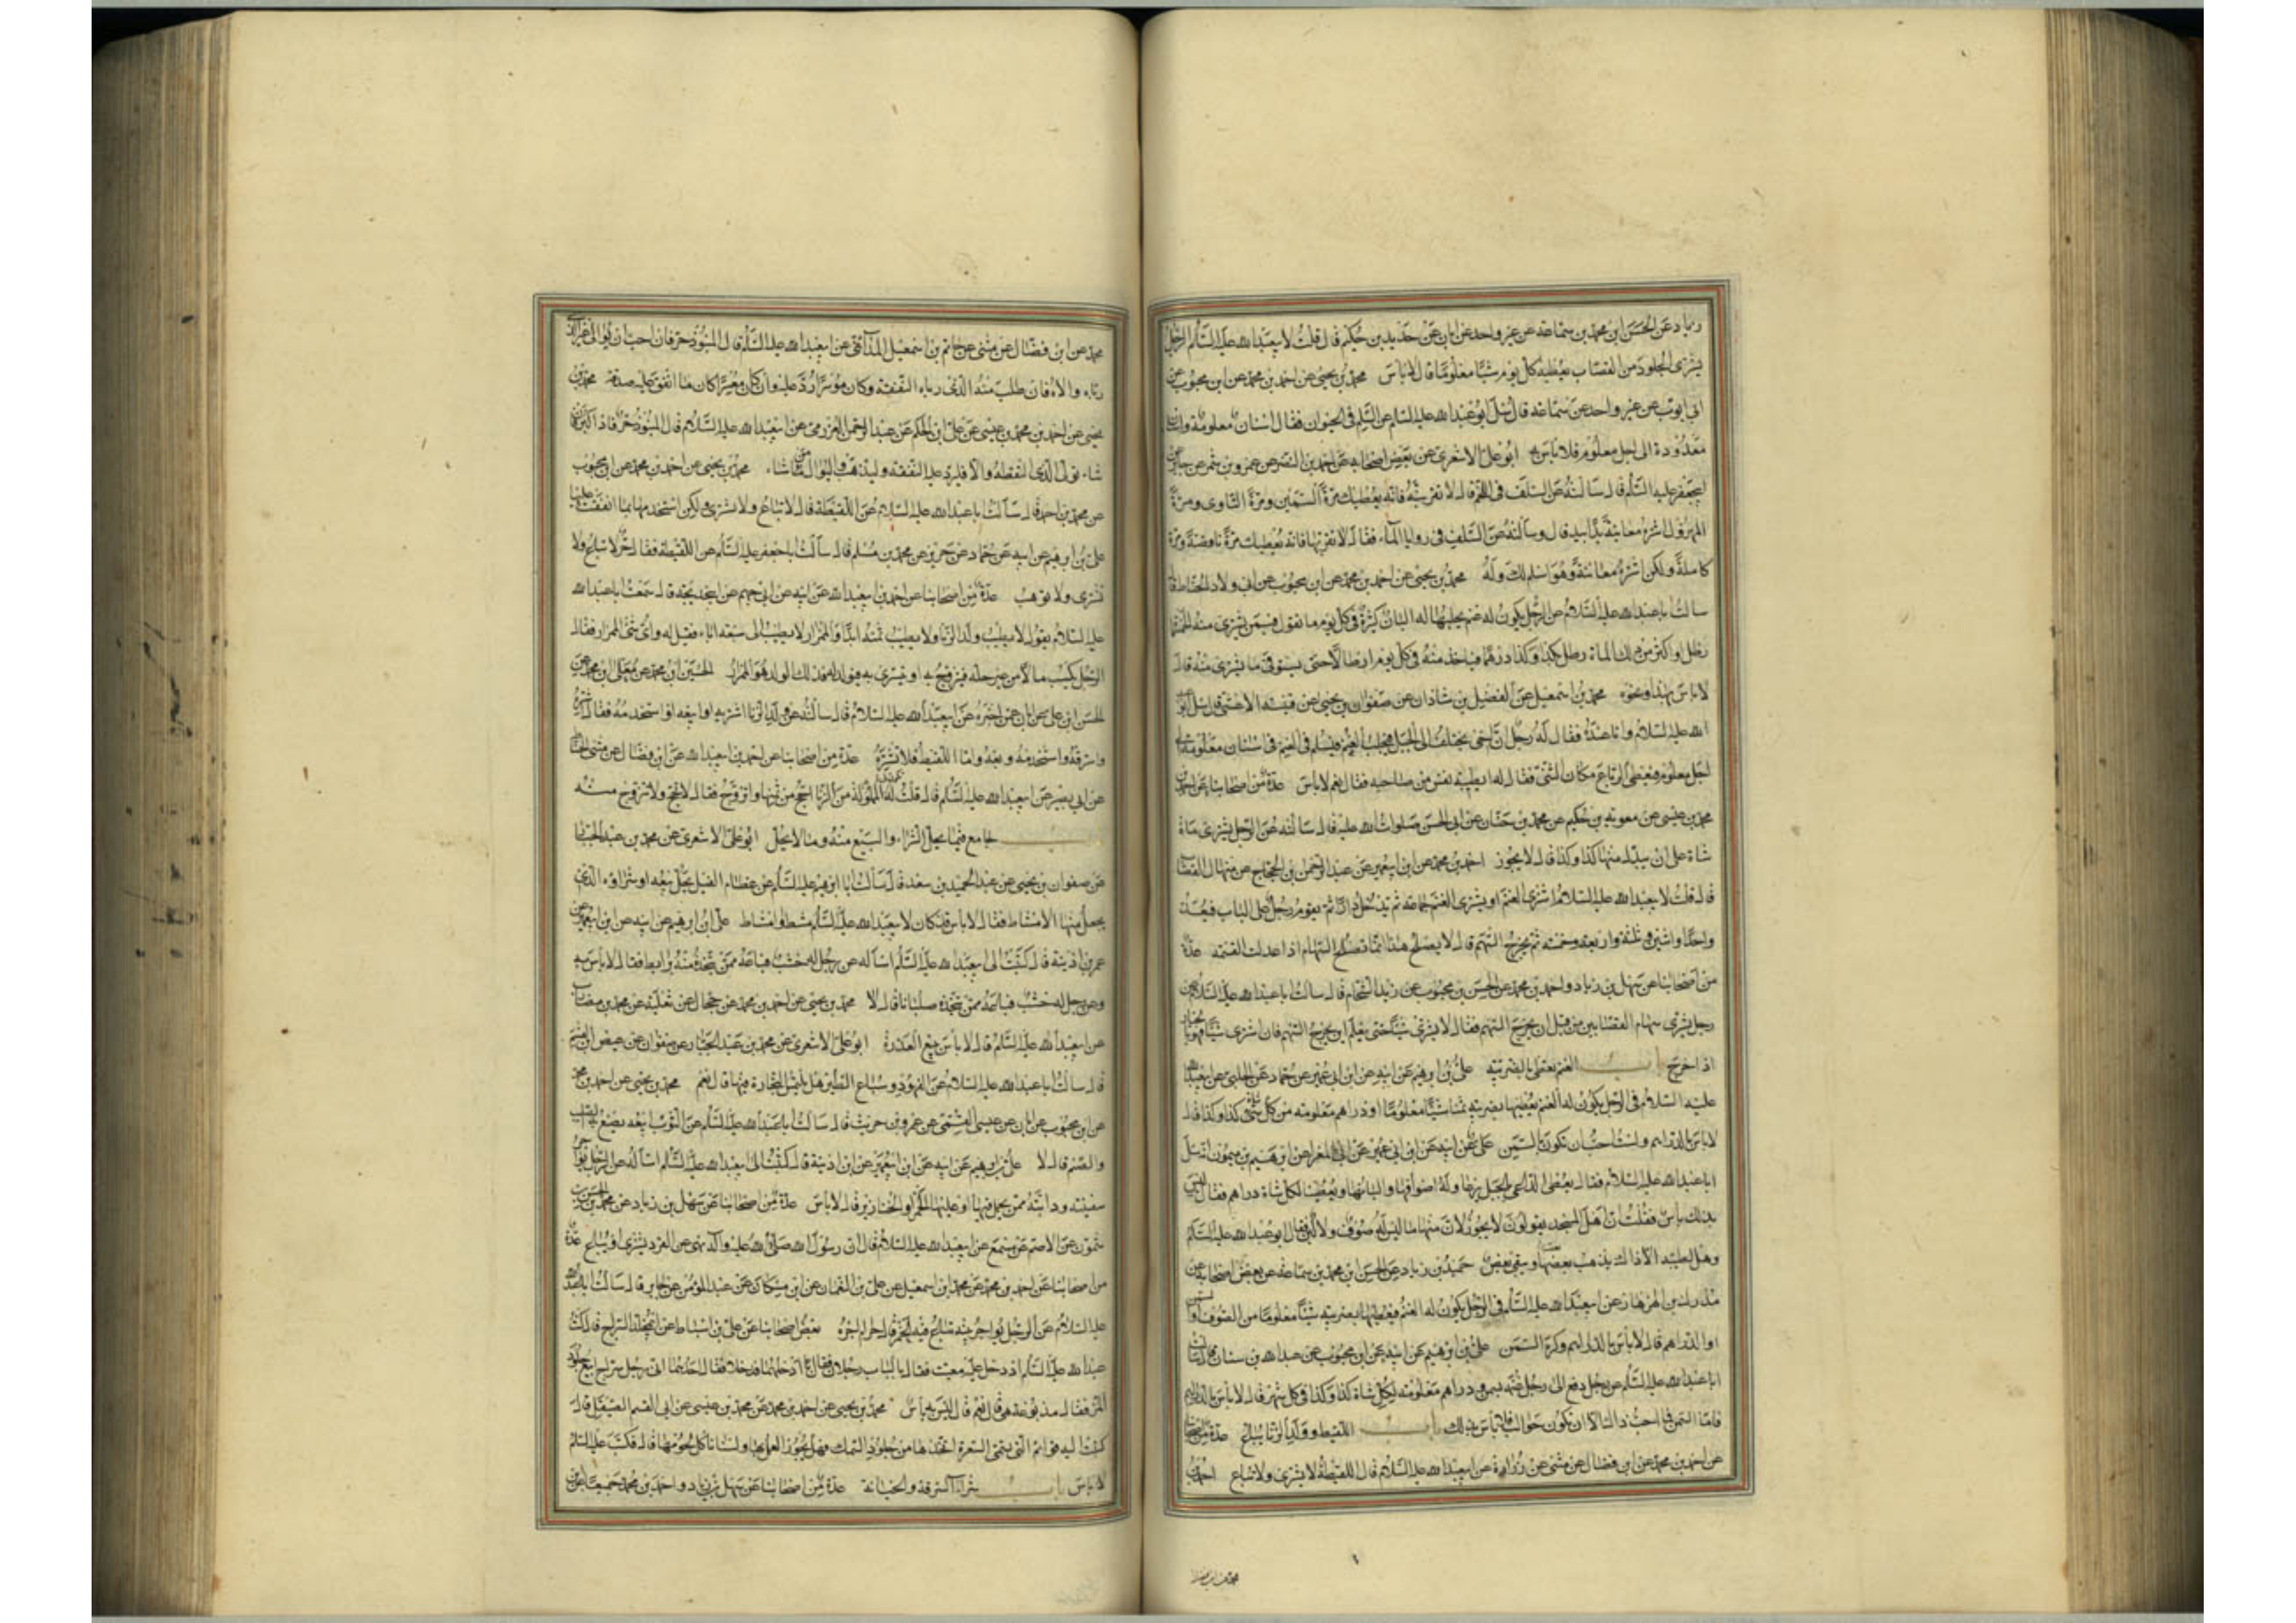 زياد عن الحسن ابن محمد بن سماعة عن غير واحد عن ابان عن حديد بن حكيم قال قلت لابيعبدالله عليه السلام الرجل
يشتري الجلود من القصاب يعطيه كل يوم شيئا معلوما قال لا باس محمد بن يحيى عن احمد بن محمد عن ابن محبوب عن
ابي ايوب عن غير واحد عن سماعة قال سئل ابو عبدالله عليه السلام عن السلم في الحيوان فقال اسنان معلومة واسنان
معدودة الى اجل معلوم فلا باس به ابو علي الاشعري عن بعض اصحابه عن احمد بن النضر عن عمرو بن شمر عن جابر عن
ابيجعفر عليه السلام قال سالته عن السلف في اللحم قال لا تقربنه فانه يعطيك مرة السمين ومرة التاوي ومرة
المهزول اشتره معاينة يدا بيد قال وسالته عن السلف في روايا الماء فقال لا تقربها فانه يعطيك مرة ناقصة ومرة
كاملة ولكن اشتره معاينة وهو اسلم لك وله محمد بن يحيى عن احمد بن محمد عن ابن محبوب عن ابي ولاد الحناط قال
سالت اباعبدالله عليه السلام عن الرجل يكون له غنم يحلبها له البان كثيرة في كل يوم ما تقول فيمن يشتري منه الخمسمائة
رطل او اكثر من ذلك المائة رطل بكذا وكذا درهما فياخذ منه في كل يوم ارطالا حتى يستوفي ما يشتري منه قال
لا باس بهذا ونحوه محمد بن اسمعيل عن الفضيل بن شاذان عن صفوان بن يحيى عن قتيبة الاعشى قال سئل ابو عبد
الله عليه السلام وانا عنده فقال له رجل ان اخي يختلف الى الجبل يجلب الغنم فيسلم في الغنم في اسنان معلومة الى
اجل معلوم فيعطى الرباع مكان الثني فقال له ابطيبة نفس من صاحبه فقال نعم لا باس عدة من اصحابنا عن احمد بن
محمد بن عيسى عن معوية بن حكيم عن محمد بن حنان عن ابي الحسن صلوات الله عليه قال سالته عن الرجل يشتري مائة
شاة على ان يبدل منها كذا وكذا قال لا يجوز احمد بن محمد عن ابن ابيعمير عن عبدالرحمن بن الحجاج عن منهال القصاب
قال قلت لابيعبدالله عليه السلام اشتري الغنم او يشتري الغنم جماعة ثم تدخل دارا ثم يقوم رجل على الباب فيعد
واحدا واثنين وثلثة واربعة وخمسة ثم يخرج السهم قال لا يصلح هذا انما تصلح السهام اذا عدلت القسمة عدة
من اصحابنا عن سهل بن زياد واحمد بن محمد عن الحسن بن محبوب عن زيد الشحام قال سالت اباعبدالله عليه السلام عن
رجل يشتري سهام القصابين من قبل ان يخرج السهم فقال لا يشتري شيئا حتى يعلم اين يخرج السهم فان اشترى شيئا فهو بالخيار
اذا خرج باب الغنم تعطى بالضريبة علي بن ابرهيم عن ابيه عن ابن ابي عمير عن حماد عن الحلبي عن ابيعبدالله
عليه السلام في الرجل يكون له الغنم يعطيها بضريبة سمنا شيئا معلوما او دراهم معلومة من كل شاة كذا وكذا قال
لا باس بالدراهم ولست احب ان تكون بالسمن علي عن ابيه عن ابن ابي عمير عن ابي المغرا عن ابرهيم بن ميمون انه سئل
اباعبدالله عليه السلام فقال يعطى الراعي الجبل يرعاها وله اصوافها والبانها ويعطينا لكل شاة دراهم فقال ليس
بذلك باس فقلت ان اهل المسجد يقولون لا يجوز لان منها ما ليس له صوف ولا لبن فقال ابو عبدالله عليه السلام
وهل يطيبه الا ذاك يذهب بعضه ويبقى بعض حميد بن زياد عن الحسن ابن محمد بن سماعة عن بعض اصحابه عن
مدرك بن الهزهاز عن ابيعبدالله عليه السلام في الرجل يكون له الغنم فيعطيها بضريبة شيئا معلوما من الصوف او السمن
او الدراهم قال لا باس بالدراهم وكره السمن علي بن ابرهيم عن ابيه عن ابن محبوب عن عبدالله بن سنان قال سالت
اباعبدالله عليه السلام عن رجل دفع الى رجل غنمه بسمن ودراهم معلومة لكل شاة كذا وكذا في كل شهر قال لا باس بالدراهم
فاما السمن فما احب ذاك الا ان تكون حوالب فلا باس بذلك باب اللقيط وولد الزنا يباع عدة من اصحابنا
عن احمد بن محمد عن ابن فضال عن مثنى عن زرارة عن ابيعبدالله عليه السلام قال اللقيطة لا يشترى ولا تباع احمد بن
محمد عن ابن فضال
محمد عن ابن فضال عن مثنى عن حاتم بن اسمعيل المدائني عن ابيعبدالله عليه السلام قال المنبوذ حر فان احب ان يوالي غير الذي
رباه والاه فان طلب منه الذي رباه النفقة وكان موسرا رد عليه وان كان معسرا كان ما انفق عليه صدقة محمد بن
يحيى عن احمد بن محمد بن عيسى عن علي ابن الحكم عن عبدالرحمن العرزمي عن ابيعبدالله عليه السلام قال المنبوذ حر فاذا كبر فان
شاء توالى الذي التقطه والا فليرد عليه النفقة وليذهب فليوال من شاء محمد بن يحيى عن احمد بن محمد عن ابن محبوب
عن محمد بن احمد قال سالت اباعبدالله عليه السلام عن اللقيطة قال لا تباع ولا تشترى ولكن استخدمها بما انفقت عليها
علي بن ابرهيم عن ابيه عن حماد عن حريز عن محمد بن مسلم قال سالت اباجعفر عليه السلام عن اللقيطة فقال حر لا تباع ولا
تشترى ولا توهب عدة من اصحابنا عن احمد بن ابيعبدالله عن ابيه عن ابي جهم عن ابيخديجة قال سمعت اباعبدالله
عليه السلام يقول لا يطيب ولد الزنا ولا يطيب ثمنه ابدا والممزار لا يطيب الى سبعة اباء فقيل له واي شيء الممزار فقال
الرجل يكسب مالا من غير حله فيتزوج به او يتسرى به فيولد له فذلك الولد هو الممزار الحسين ابن محمد عن معلى ابن محمد عن
الحسن ابن علي عن ابان عمن اخبره عن ابيعبدالله عليه السلام قال سالته عن ولد الزنا اشتريه او ابيعه او استخدمه فقال اشتره
واسترقه واستخدمه وبعه واما اللقيط فلا تشتره عدة من اصحابنا عن احمد بن ابيعبدالله عن ابن فضال عن مثنى الحناط
عن ابي بصير عن ابيعبدالله عليه السلام قال قلت له المملوكة من الزنا احج من ثمنها واتزوج فقال لا تحج ولا تتزوج منه
باب جامع فيما يحل الشراء والبيع منه وما لا يحل ابو علي الاشعري عن محمد بن عبدالجبار
عن صفوان بن يحيى عن عبدالحميد بن سعد قال سالت ابا ابرهيم عليه السلام عن عظام الفيل يحل بيعه او شراؤه الذي
يجعل منها الامشاط فقال لا باس قد كان لابيعبدالله عليه السلام مشط او امشاط علي ابن ابرهيم عن ابيه عن ابن ابيعمير عن
عمر بن اذينة قال كتبت الى ابيعبدالله عليه السلام اساله عن رجل له خشب فباعه ممن يتخذ منه برابط فقال لا باس به
وعن رجل له خشب فباعه ممن يتخذه صلبانا قال لا محمد بن يحيى عن احمد بن محمد عن حجال عن ثعلبة عن محمد بن مضارب
عن ابيعبدالله عليه السلام قال لا باس ببيع العذرة ابو علي الاشعري عن محمد بن عبدالجبار عن صفوان عن عيص ابن القسم
قال سالت اباعبدالله عليه السلام عن الفهود وسباع الطير هل يلتمس التجارة فيها قال نعم محمد بن يحيى عن احمد بن محمد
عن ابن محبوب عن ابان عن عيسى القمي عن عمرو بن حريث قال سالت اباعبدالله عليه السلام عن التوت ابيعه يصنع للصليب
والصنم قال لا علي بن ابرهيم عن ابيه عن ابن ابيعمير عن ابن اذينة قال كتبت الى ابيعبدالله عليه السلام اساله عن الرجل يواجر
سفينته ودابته ممن يحمل فيها او عليها الخمر او الخنازير قال لا باس عدة من اصحابنا عن سهل بن زياد عن محمد بن الحسن بن
شمون عن الاصم عن مسمع عن ابيعبدالله عليه السلام قال ان رسول الله صلى الله عليه وآله نهى عن القرد يشترى او يباع عدة
من اصحابنا عن احمد بن محمد عن محمد ابن اسمعيل عن علي بن النعمان عن ابن مسكان عن عبدالمؤمن عن جابر قال سالت اباعبدالله
عليه السلام عن الرجل يواجر بيته تباع فيه الخمر قال حرام اجره بعض اصحابنا عن علي بن اسباط عن ابيمخلد السراج قال كنت
عند ابيعبدالله عليه السلام اذ دخل عليه معتب فقال بالباب رجلان فقال ادخلهما فدخلا فقال احدهما اني رجل سراج ابيع جلود
النمر فقال مدبوغة هي قال نعم قال ليس به باس محمد بن يحيى عن احمد بن محمد عن محمد بن عيسى عن ابي القسم الصيقل قال
كتبت اليه قوائم التي يسمى السفرة اتخذها من جلود السمك فهل يجوز العمل بها ولسنا ناكل لحومها قال فكتب عليه السلام
لا باس باب شراء السرقة والخيانة عدة من اصحابنا عن سهل بن زياد واحمد بن محمد جميعا عن